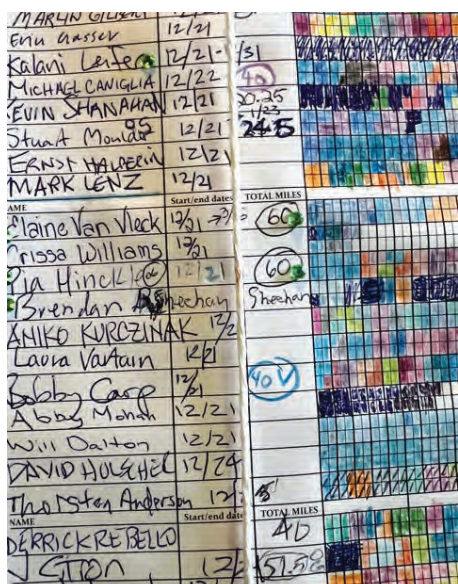 MARLYN GILBERT
Erin Gasser 12/21
Kalani 12/21- /31
MICHAEL CANIGLIA 12/22 40
KEVIN SHANAHAN 12/21 20.25
Stuart 12/21 24.5
ERNST HALPERIN 12/21
MARK LENZ 12/21
NAME Start/end dates TOTAL MILES
Elaine Van Vleck 12/21 60
Crissa Williams 12/21
Pia Hinckle 12/21 60
Brendan Sheehan Sheehan
ANIKO KURCZINAK 12/2
Laura Vartain 12/21
Bobby Casp 12/21 40 V
Abby Mohan 12/21
Will Dalton 12/21
DAVID 12/24
Thorsten Anderson 12/
NAME Start/end dat TOTAL MILES
DERRICK REBELLO 40
12/2 51.5